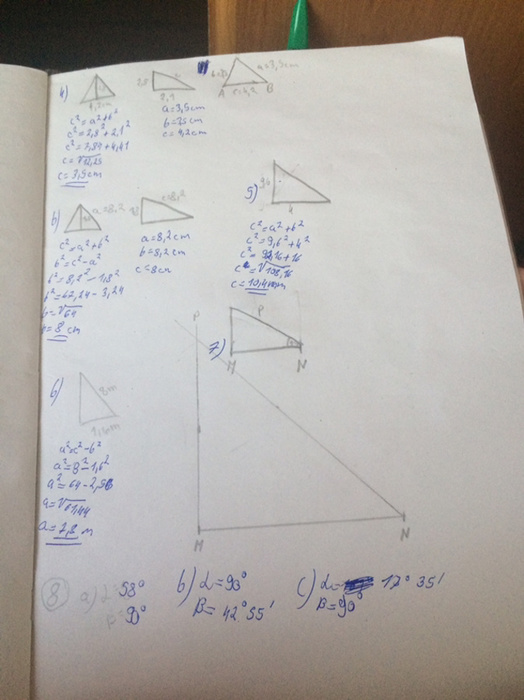 4)
4,2cm
c²=a²+b²
c²=2,8²+2,1²
c²=7,84+4,41
c=√12,25
c=3,5cm
2,8
2,1
a=3,5cm
b=3,5cm
c=4,2cm
a=3,5cm
A
c=4,2
B
b)
a=8,2
c²=a²+b²
b²=c²-a²
b²=8,2²-1,8²
b²=67,24-3,24
b=√64
b=8cm
c=8,2
a=8,2cm
b=8,2cm
c=8cm
5)
9,6
4
c²=a²+b²
c²=9,6²+4²
c²=92,16+16
c=√108,16
c=10,4mm
6)
8m
1,6m
a²=c²-b²
a²=8²-1,6²
a²=64-2,56
a=√61,44
a=7,8m
7)
P
M
N
P
M
N
8
a) α=58°
β=90°
b) α=90°
β=42°55'
c) α= 17°35'
β=90°